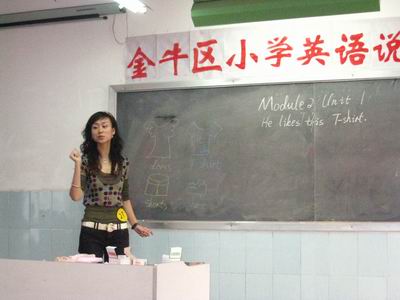 金牛区小学英语说
Module 2 Unit 1
He likes this T-shirt.
dress
T-shirt
shorts